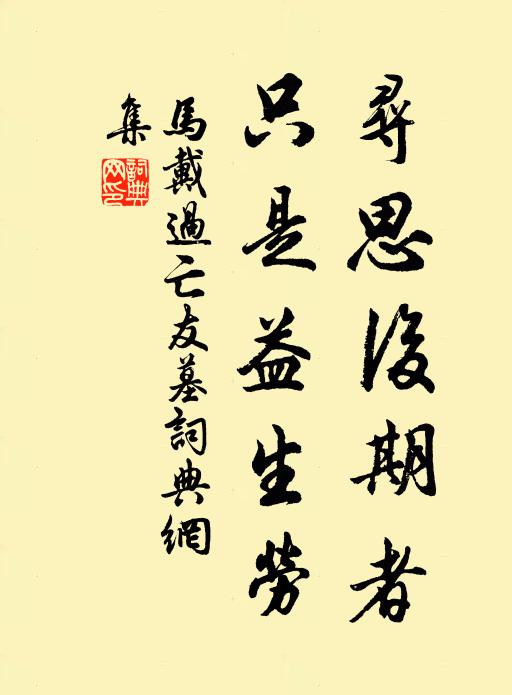 尋思後期者
只是益生勞
馬戴過亡友墓詞典網
集
詞典網印